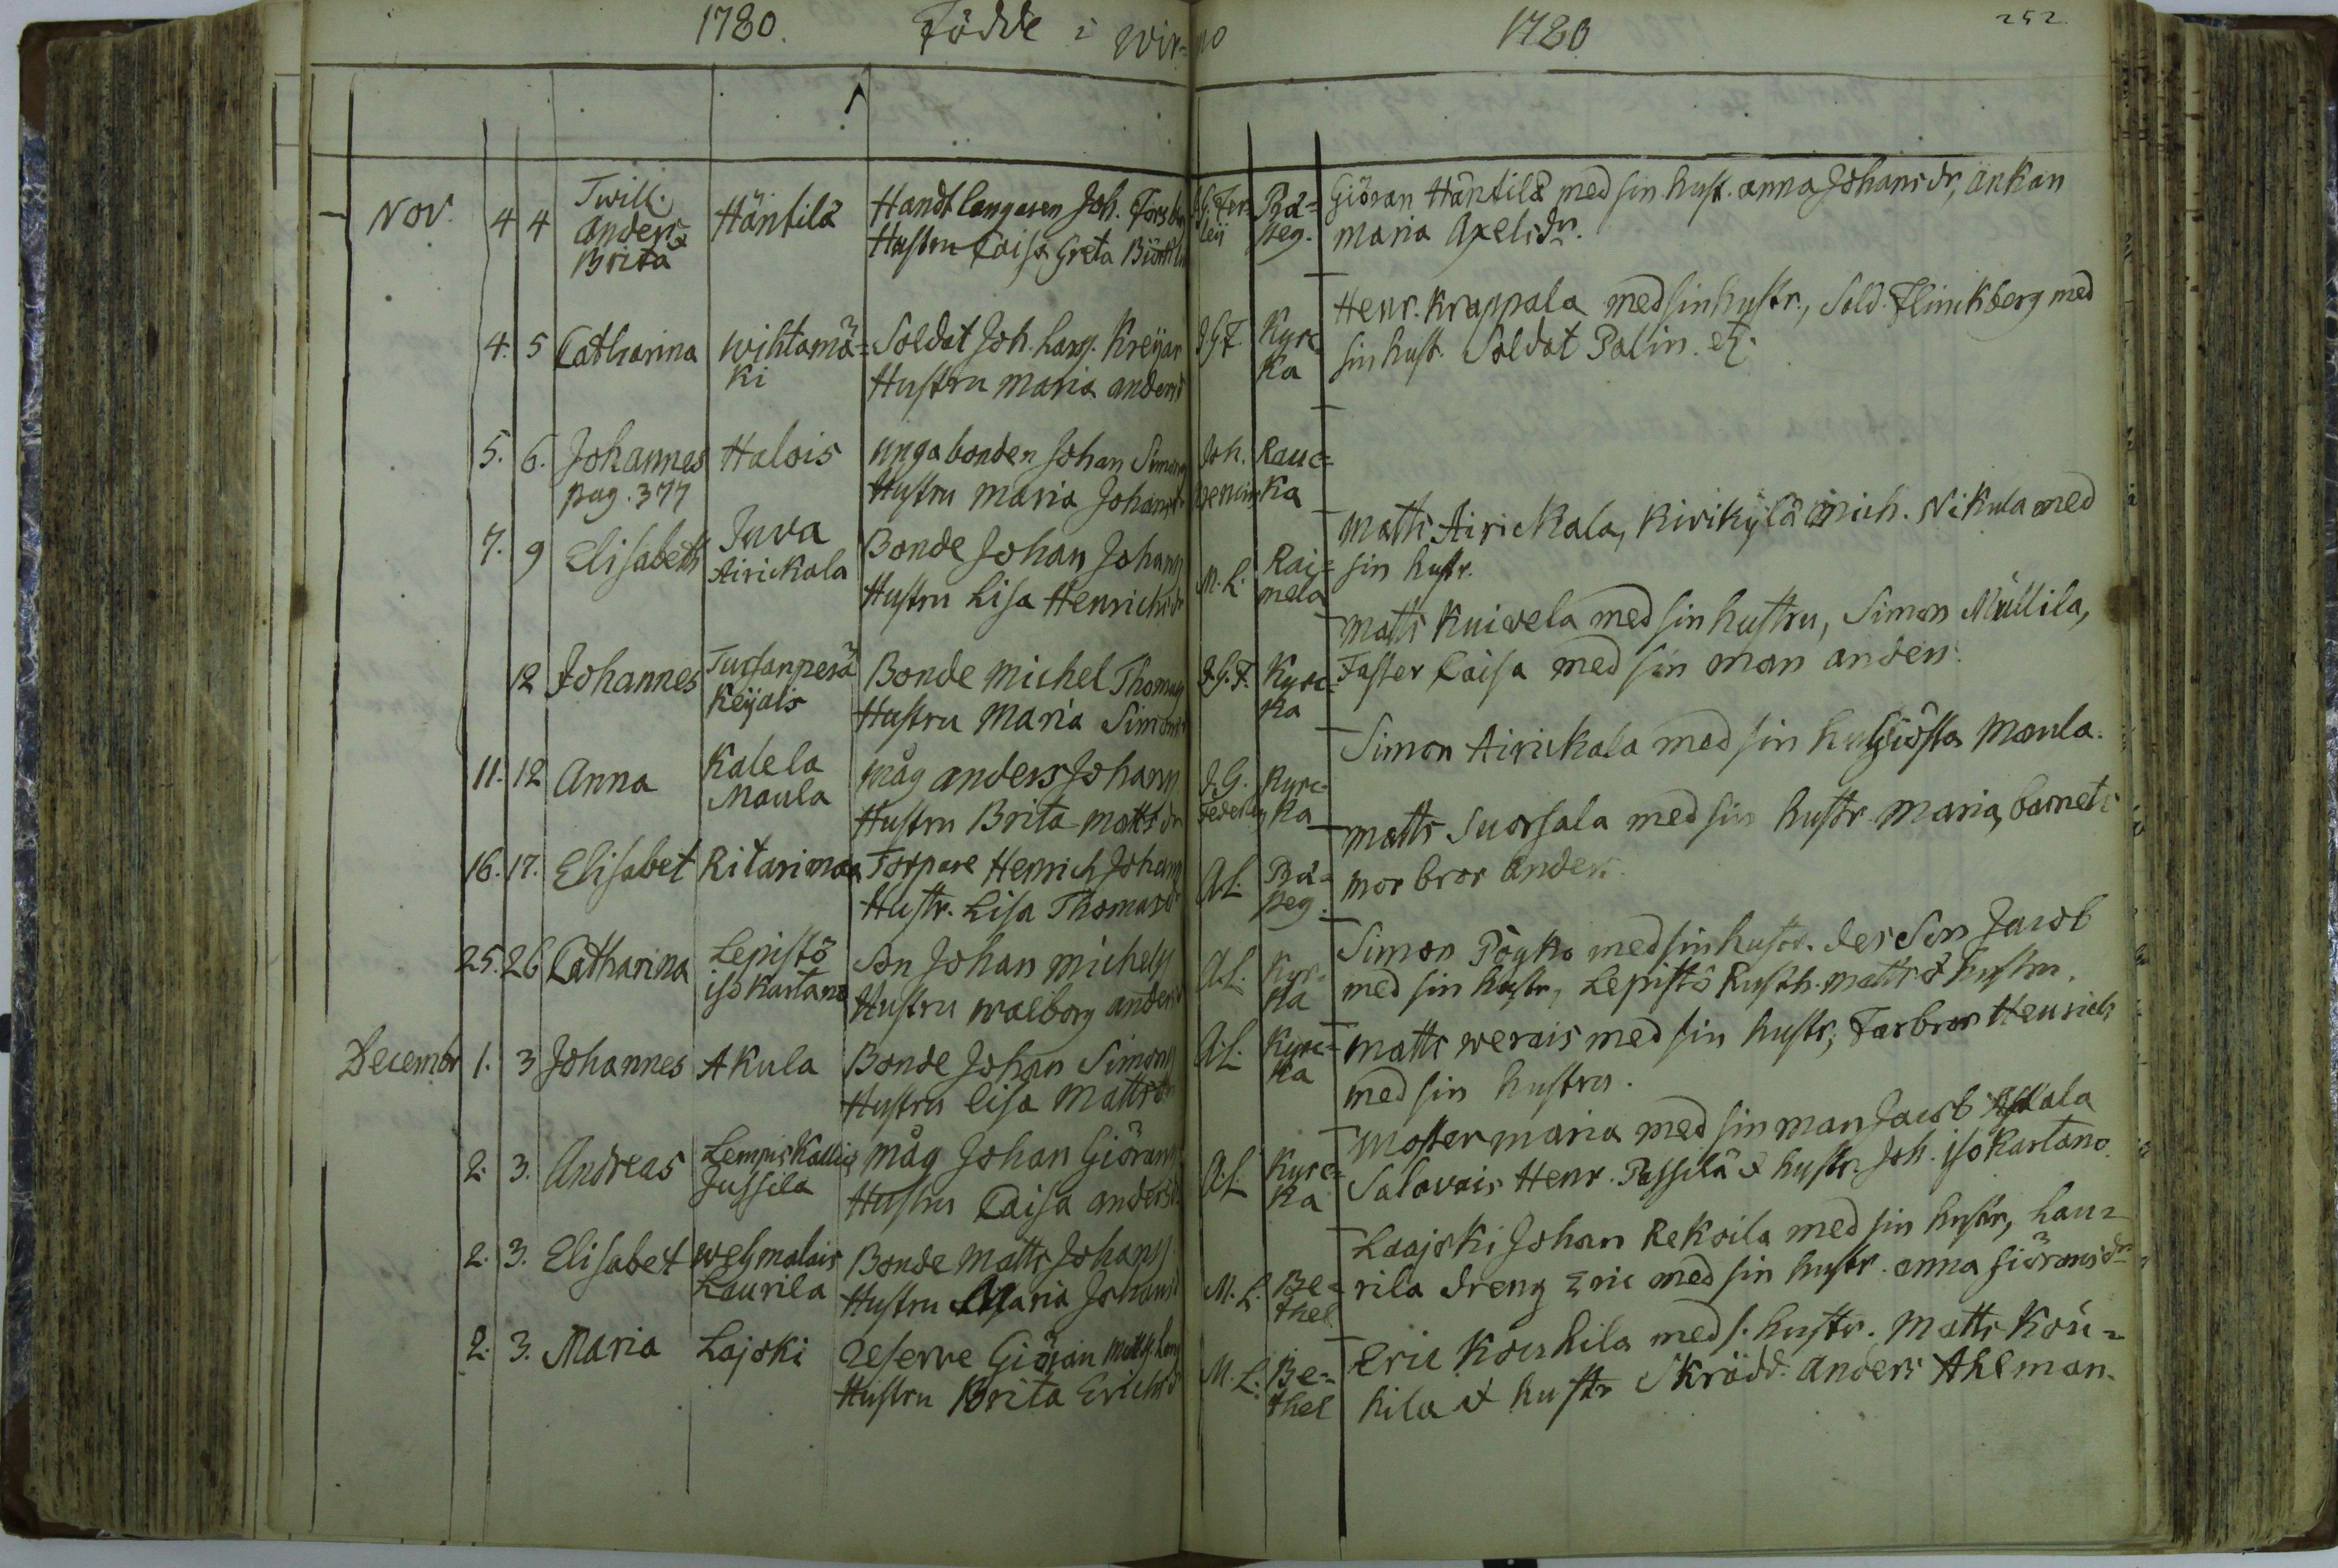 1780. Födde i Wir=mo 1780 252.
Nov. 4 4 Twill. Anders & Brita Häntilä Handtlangaren Joh. Forsb
Hustru Caisa Greta Biörkl
J.G. Fer=leij Pra=steg. Giöran Häntilä med sin hust. Anna Johansdr, änkan
Maria Axelsdr.
4. 5 Catharina Wihtamä=ki Soldat Joh. Larss. Kreijar
Hustru Maria Andersd
J.G.F. Kyrc=ka Henr. Krappala med sin hustr., Sold. Flinckberg med
sin hust. Soldat Palin. etc.
5. 6. Johannes Halois Unga bonden Johan Simons
pag. 377 Hustru Maria Johansdr
Joh. Rauc=ka
7. 9 Elisabeth Juva Airickala Bonde Johan Johanss
Hustru Lisa Henrichsdr
M.L. Rai=mela Matts Airickala, Kirikylä Mich. Nikula med
sin hustr.
12 Johannes Tursanperä Keijais Bonde Michel Thomass
Hustru Maria Simonsdr
J.G.F. Kyrc=ka Matts Kuivela med sin hustru, Simon Mällila,
Faster Caisa med sin man Anders.
11. 12 Anna Kalela Maula Måg Anders Johanss
Hustru Brita Mattsdr
J.G. Federley Kyrc=ka Simon Airickala med sin hu Giösta Maula.
16. 17. Elisabet Ritarimaa Torpare Henrich Johanss
Hustr. Lisa Thomasdr
A.L. Pra=steg. Matts Suorsala med sin hustr Maria, barnets
morbror Anders.
25. 26 Catharina Lepistö iso Kartano Son Johan Michelss
Hustru Walborg Andersd
A.L. Kyr=ka Simon Pöyko med sin hustr. des Son Jacob
med sin hustr, Lepistö Rusth. Matts & hustru.
Decembr 1. 3 Johannes Akula Bonde Johan Simonss
Hustru Lisa Mattsdr
A.L. Kyrc=ka Matts Werais med sin hustr, Farbror Henrich
med sin hustru.
2. 3. Andreas Lempiskallio Jussila Måg Johan Giöranss
Hustru Caisa Andersd.
A.L. Kyrc=ka Moster Maria med sin man Jacob
Salavais Henr. Passilä & hustr. Joh. iso Kartano.
2. 3. Elisabet Wehmalais Laurila Bonde Matts Johanss
Hustru Maria Johansd
M.L. Be=thel Laajoki Johan Rekoila med sin hustr, Lau=
rila dreng Eric med sin hustr. Anna Giöransdr
2. 3. Maria Lajoki Reserve Giöran
Hustru Brita Erichsd
M.L. Be=thel Eric Kouhila med s. hustr. Matts Kou=
hila & hustr Skrädd. Anders Ahlman.